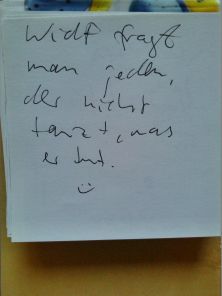 fragt
man jeden,
der nicht
tanzt, was
er tut.